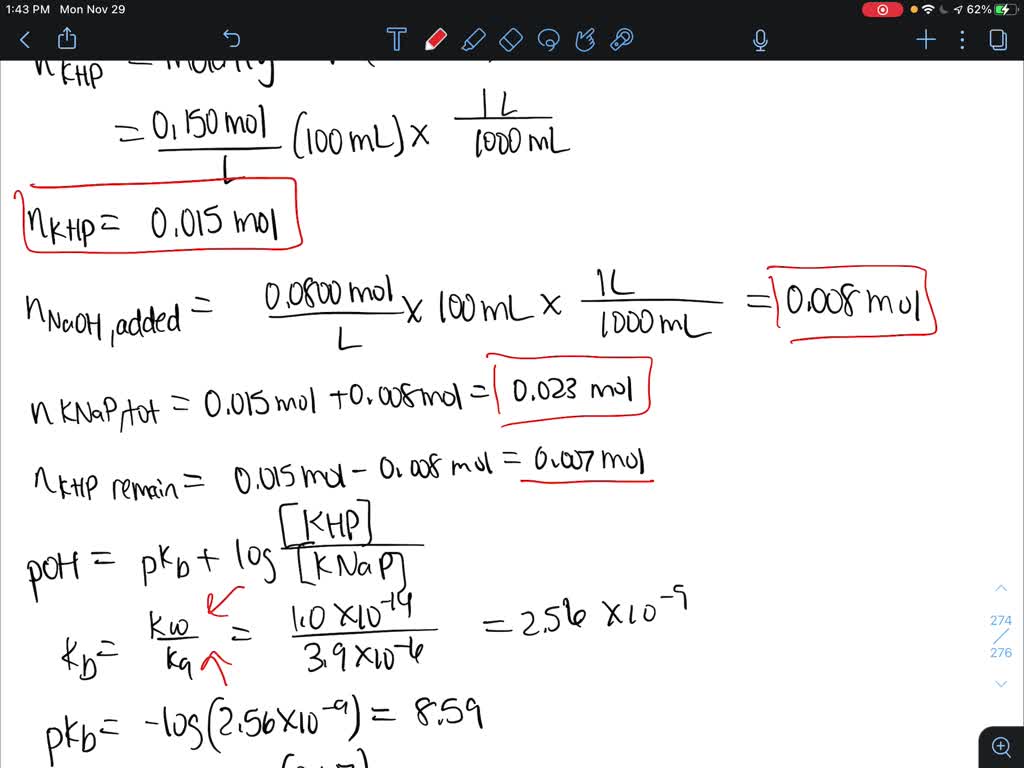 1:43 PM Mon Nov 29
62%
nKHP =
= 0.150 mol / L (100 mL) × 1L / 1000 mL
nKHP = 0.015 mol
nNaOH, added = 0.0800 mol / L × 100 mL × 1L / 1000 mL = 0.008 mol
n KNaP, tot = 0.015 mol + 0.008 mol = 0.023 mol
nKHP remain = 0.015 mol - 0.008 mol = 0.007 mol
pOH = pKb + log [KHP] / [KNaP]
Kb = Kw / Ka = 1.0 × 10^-14 / 3.9 × 10^-6 = 2.56 × 10^-9
pKb = -log(2.56 × 10^-9) = 8.59
274 / 276